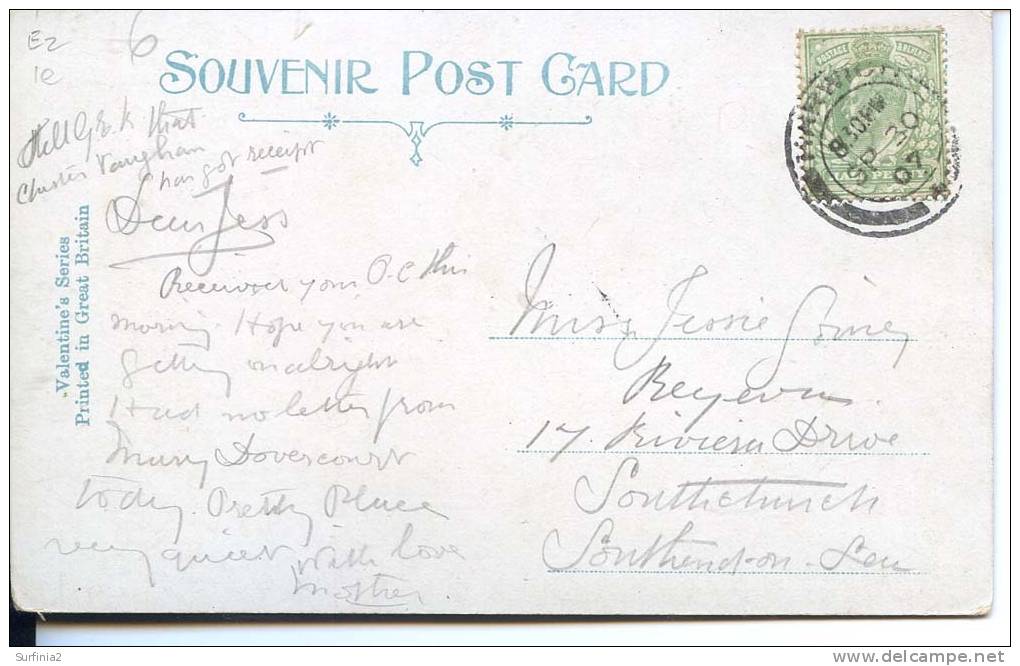 E2
6
1e
SOUVENIR POST CARD
POSTAGE & REVENUE
HALFPENNY
8.30 PM
SP 20
07
Tell G & K that
Vaughan
has got receipt
Valentine's Series
Printed in Great Britain
Dear Jess
Received your P.C this
morning. Hope you are
getting on alright
Had no letter from
Mary Dovercourt
today. Pretty Place
very quiet With love
Mother
Miss Jessie
17. Riviera Drive
Southchurch
Southend-on-Sea
Surfinia2